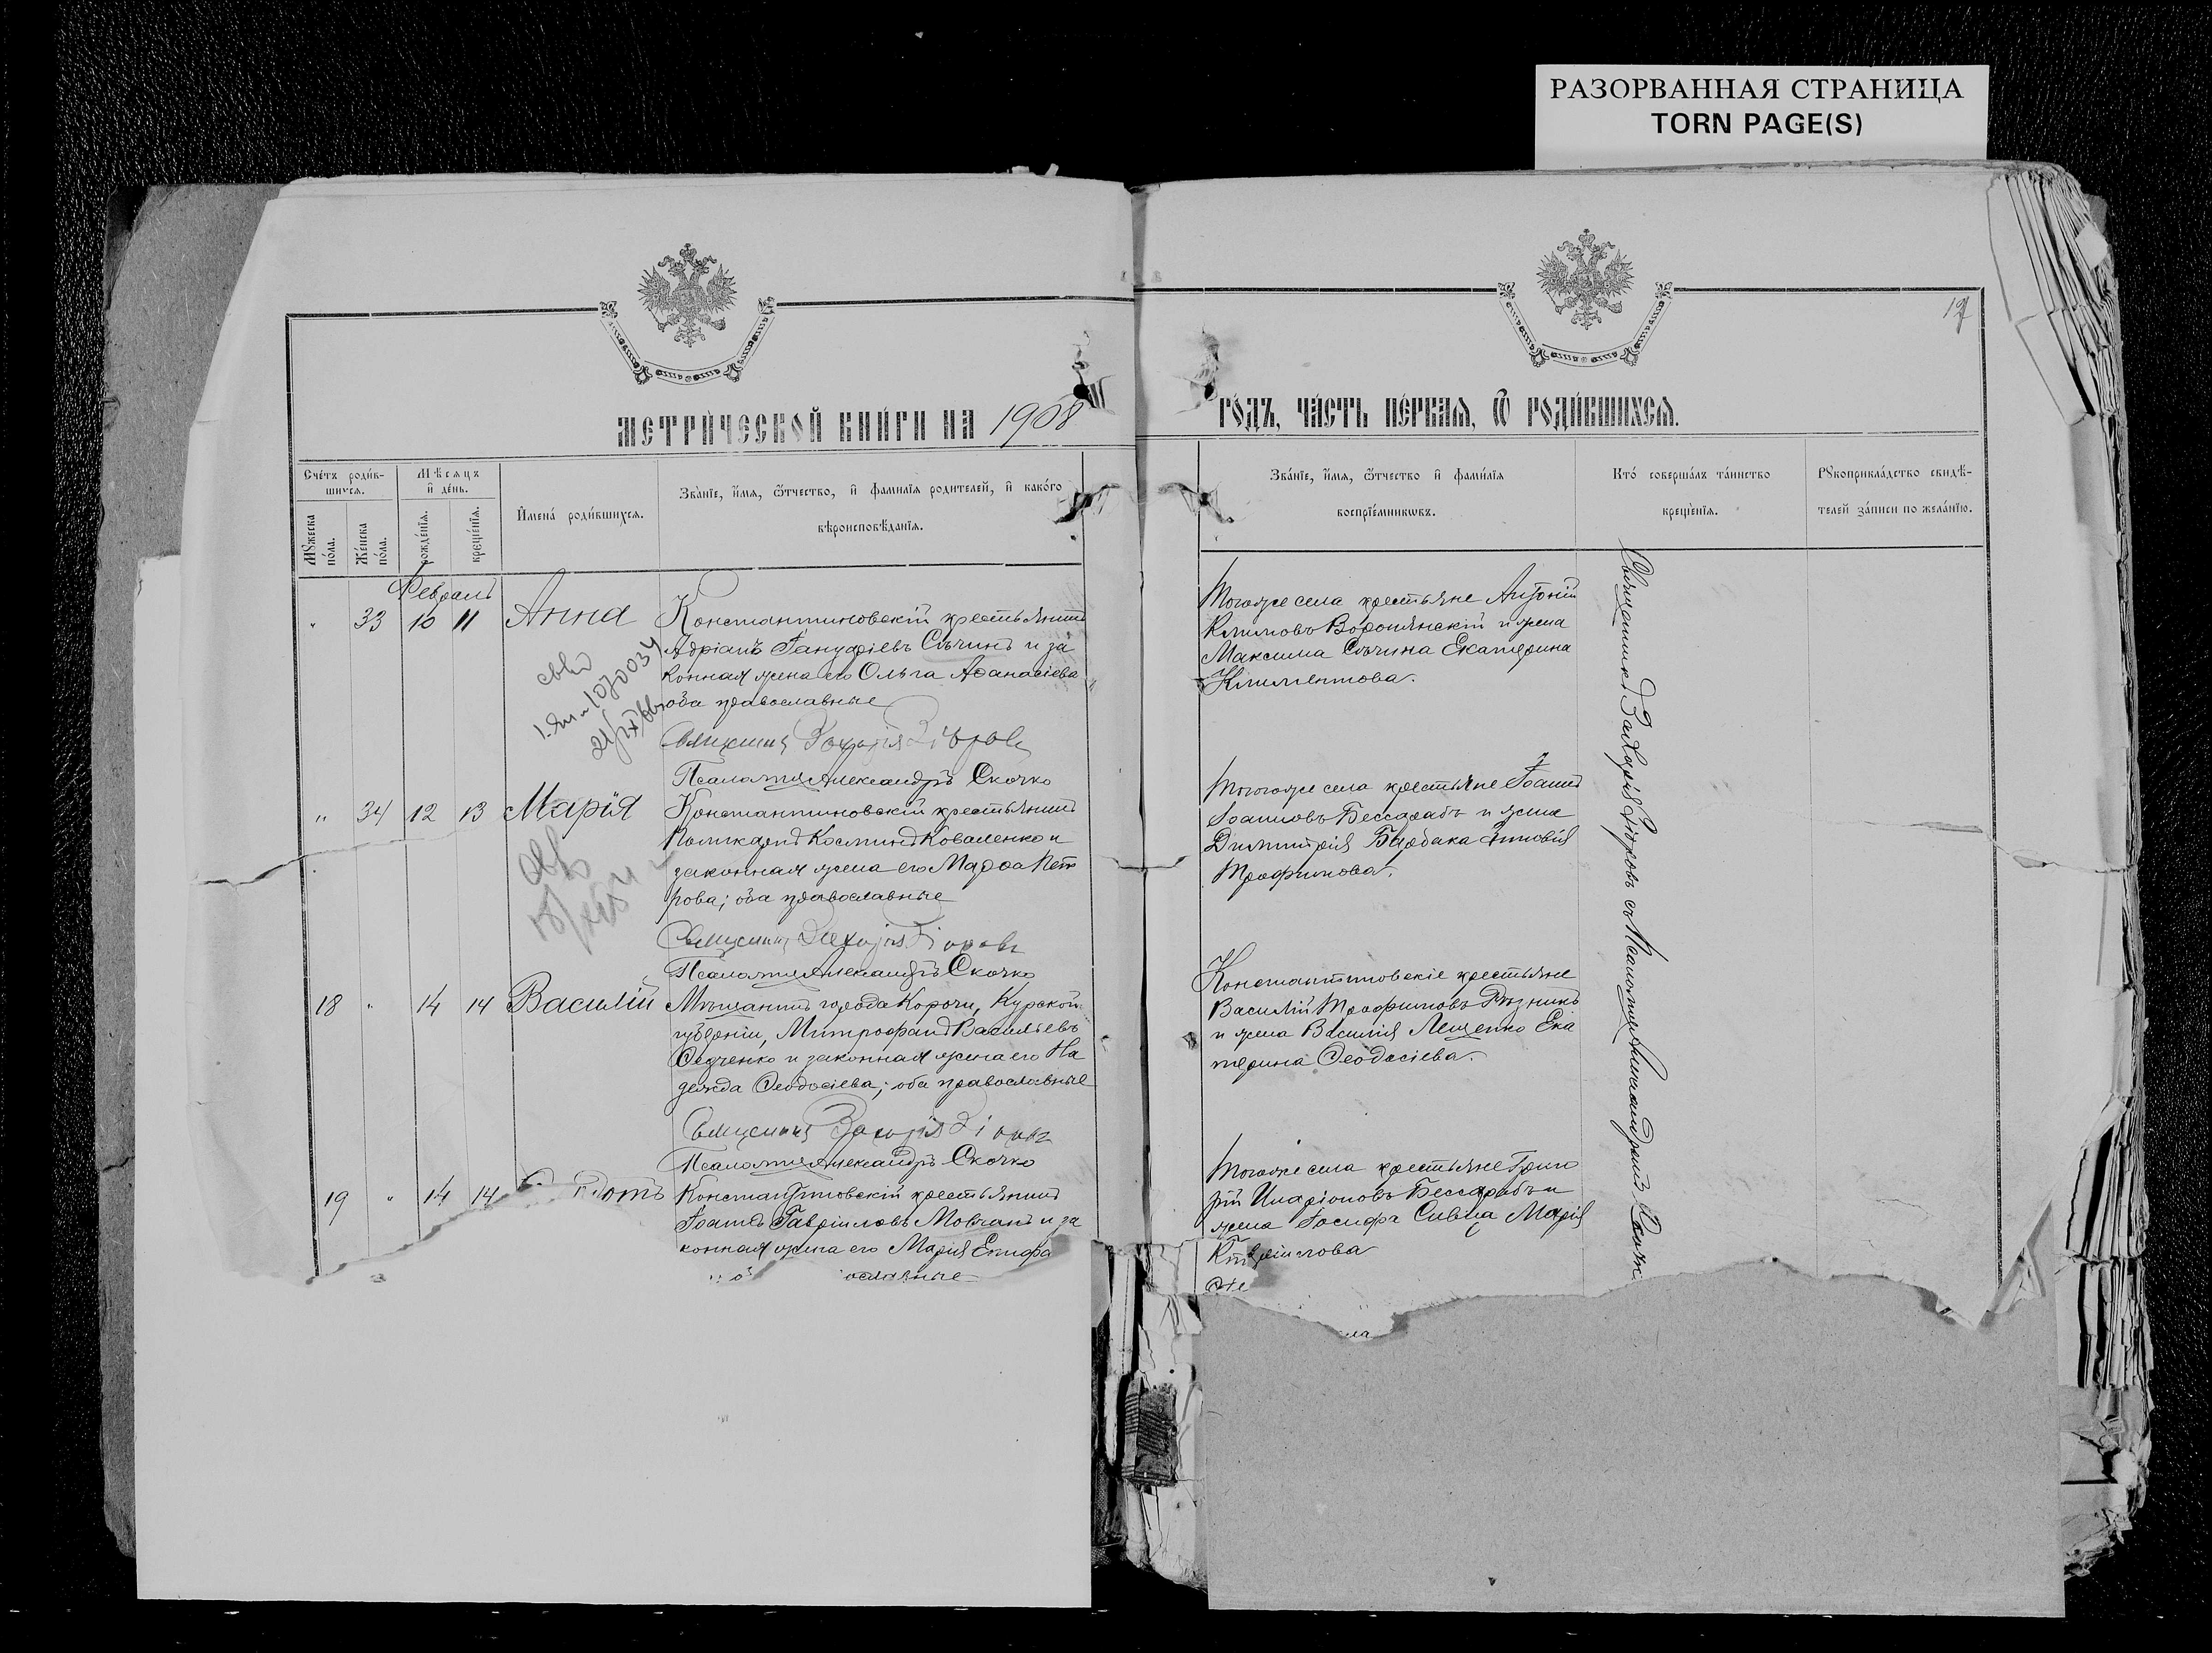 РАЗОРВАННАЯ СТРАНИЦА
TORN PAGE(S)
17
МЕТРИ́ЧЕСКОЙ КНИ́ГИ НА 1908
ГО́ДЪ, ЧА́СТЬ ПЕ́РВАЯ, Ѿ РОДИ́ВШИХСЯ.
Счётъ роди́в-
шихся.
Мѣсяцъ
и де́нь.
Мꙋжеска
по́ла.
Же́нска
по́ла.
рожде́нїя.
креще́нїя.
Имена́ роди́вшихся.
Зва́нїе, и́мя, ѻ́тчество, и фами́лїя родителей, и како́го
вѣроисповѣ́данїя.
Зва́нїе, и́мя, ѻ́тчество и фами́лїя
воспрїе́мникѡвъ.
Кто́ соверша́лъ та́инство
креще́нїя.
Рꙋкоприкла́дство свидѣ́-
телей за́писи по жела́нїю.
Февраль
" 33 10 11 Анна
Константиновскій крестьянинъ
Адріанъ Іануаріевъ Сѣчинъ и за
конная жена его Ольга Аѳанасіева
оба православные
Священникъ Захарія
Псаломщикъ Александръ Скочко
Тогоже села крестьяне Антоній
Климовъ Воронянскій и жена
Максима Сѣчина Екатерина
Климентова.
" 34 12 13 Марія
Константиновскій крестьянинъ
Поликарпъ Косминъ Коваленко и
законная жена его Марѳа Пет
рова; оба православные
Священникъ Захарія
Псаломщикъ Александръ Скочко
Тогоже села крестьяне Іоаннъ
Іоанновъ Бессарабъ и жена
Димитрія Бардака Зиновія
Трофимова.
18 " 14 14 Василій
Мѣщанинъ города Корочи, Курской
губерніи, Митрофанъ Васильевъ
Федченко и законная жена его На
дежда Ѳеодосіева; оба православные
Священникъ Захарія
Псаломщикъ Александръ Скочко
Константиновскіе крестьяне
Василій Трофимовъ Рѣзникъ
и жена Василія Лещенко Ека
терина Ѳеодосіева.
19 " 14 14
Константиновскій крестьянинъ
Іоаннъ Гавріиловъ Мовчанъ и за
конная жена его Марія Епифа
ославные
Тогоже села крестьяне Григо
рій Иларіоновъ Бессарабъ и
жена Іосифа Сивца Марія
Священникъ Захарія съ Псаломщикомъ Александромъ Скочк